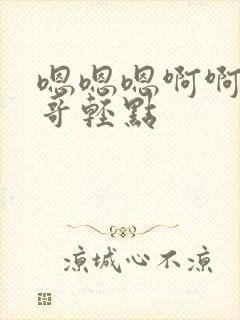 嗯嗯嗯啊啊
哥轻點
凉城心不凉